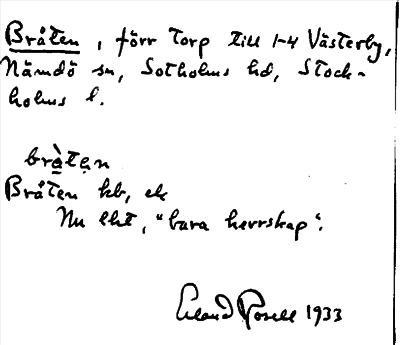 Bråten, förr torp till 1-4 Västerby,
Nämdö sn, Sotholms hd, Stock-
holms l.
bràtęn
Bråten kb, ek
Nu lht, "bara herrskap".
Erland Rosell 1933